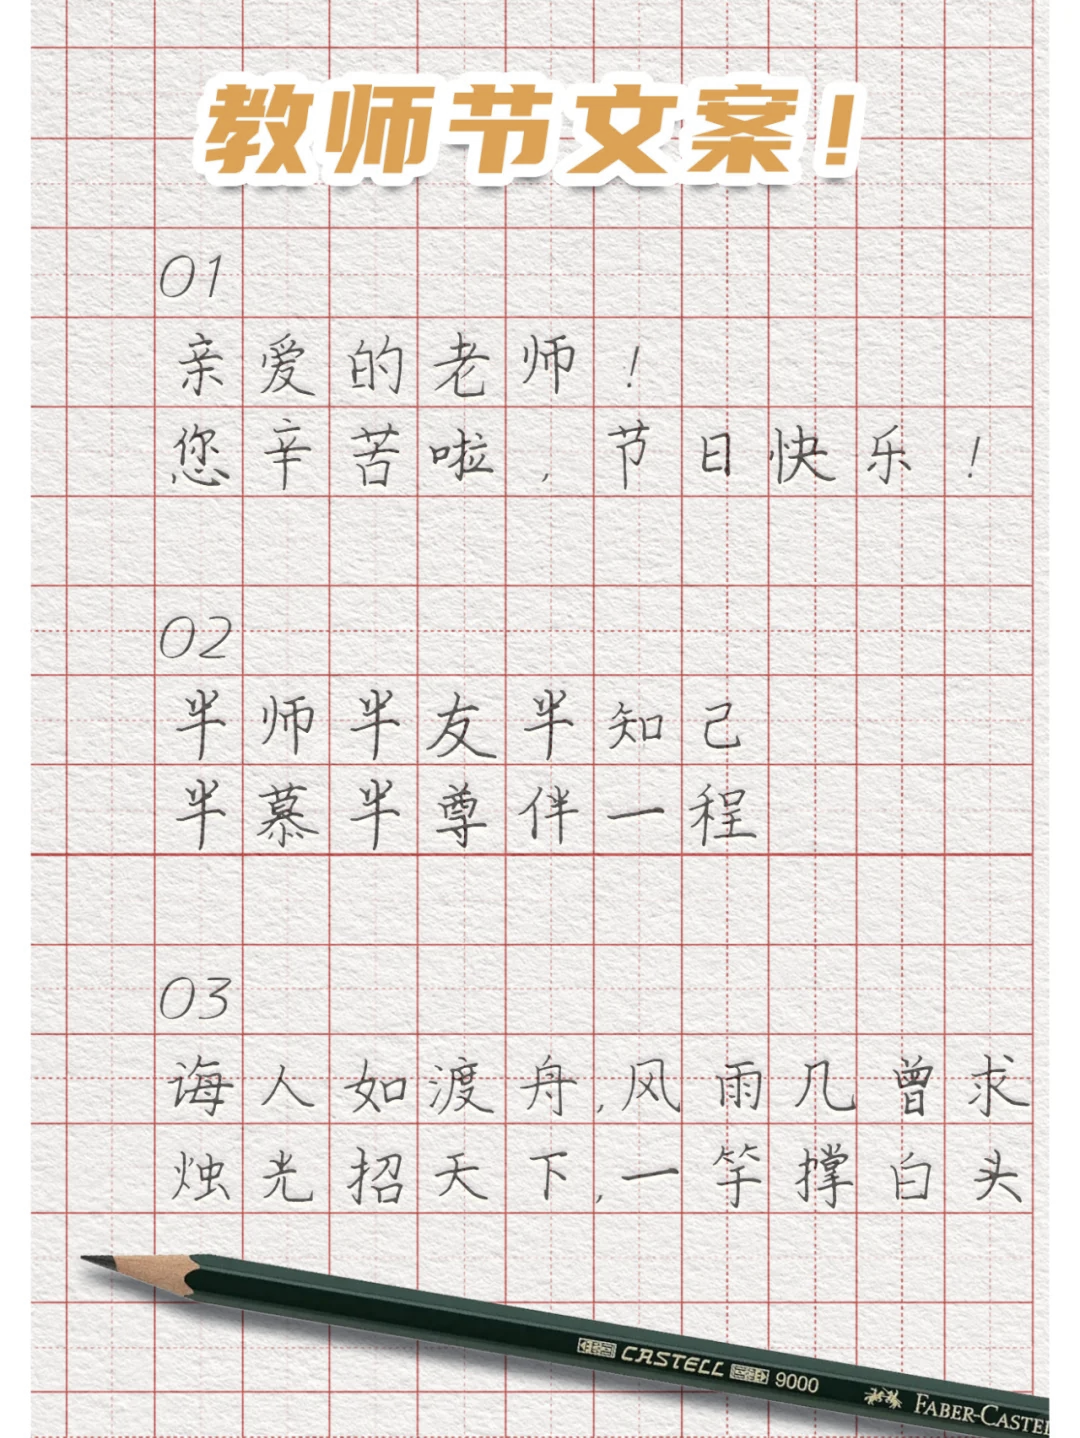 教师节文案！
01
亲爱的老师！
您辛苦啦，节日快乐！
02
半师半友半知己
半慕半尊伴一程
03
诲人如渡舟,风雨几曾求
烛光招天下,一竿撑白头
CASTELL 9000 FABER-CASTEL